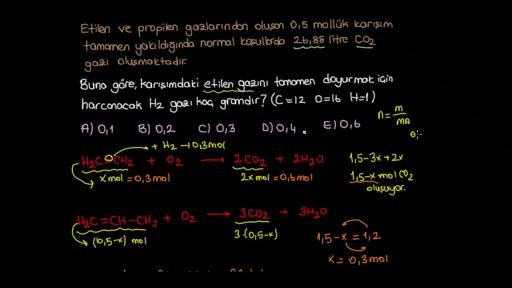 Etilen ve propilen gazlarından oluşan 0,5 mollük karışım
tamamen yakıldığında normal koşullarda 26,88 litre CO₂
gazı oluşmaktadır.
Buna göre, karışımdaki etilen gazını tamamen doyurmak için
harcanacak H₂ gazı kaç gramdır? (C=12 O=16 H=1)
n = m/MA
A) 0,1 B) 0,2 C) 0,3 D) 0,4 E) 0,6
+ H₂ → 0,3mol
H₂C=CH₂ + O₂ → 2CO₂ + 2H₂O
x mol = 0,3mol 2x mol = 0,6mol
1,5-3x+2x
1,5-x mol CO₂
oluşuyor.
H₂C=CH-CH₃ + O₂ → 3CO₂ + 3H₂O
(0,5-x) mol 3·(0,5-x)
1,5-x = 1,2
x = 0,3mol